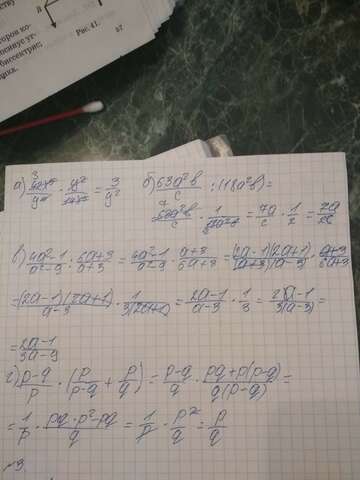 ству
В
Рис. 41.
57
биссектрис
а) 3 42x⁵/y⁴ · y²/14x⁵ = 3/y² б) 63a³b/c : (18a²b) =
7 63a³b/c · 1/18a²b = 7a/c · 1/2 = 7a/2c
в) 4a²-1/a²-9 : 6a+3/a+3 = 4a²-1/a²-9 · a+3/6a+3 = (2a-1)(2a+1)/(a+3)(a-3) · a+3/6a+3
= (2a-1)(2a+1)/a-3 · 1/3(2a+1) = 2a-1/a-3 · 1/3 = 2a-1/3(a-3) =
= 2a-1/3a-9
г) p-q/p · (p/p-q + p/q) = p-q/p · pq+p(p-q)/q(p-q) =
= 1/p · pq+p²-pq/q = 1/p · p²/q = p/q
№9.